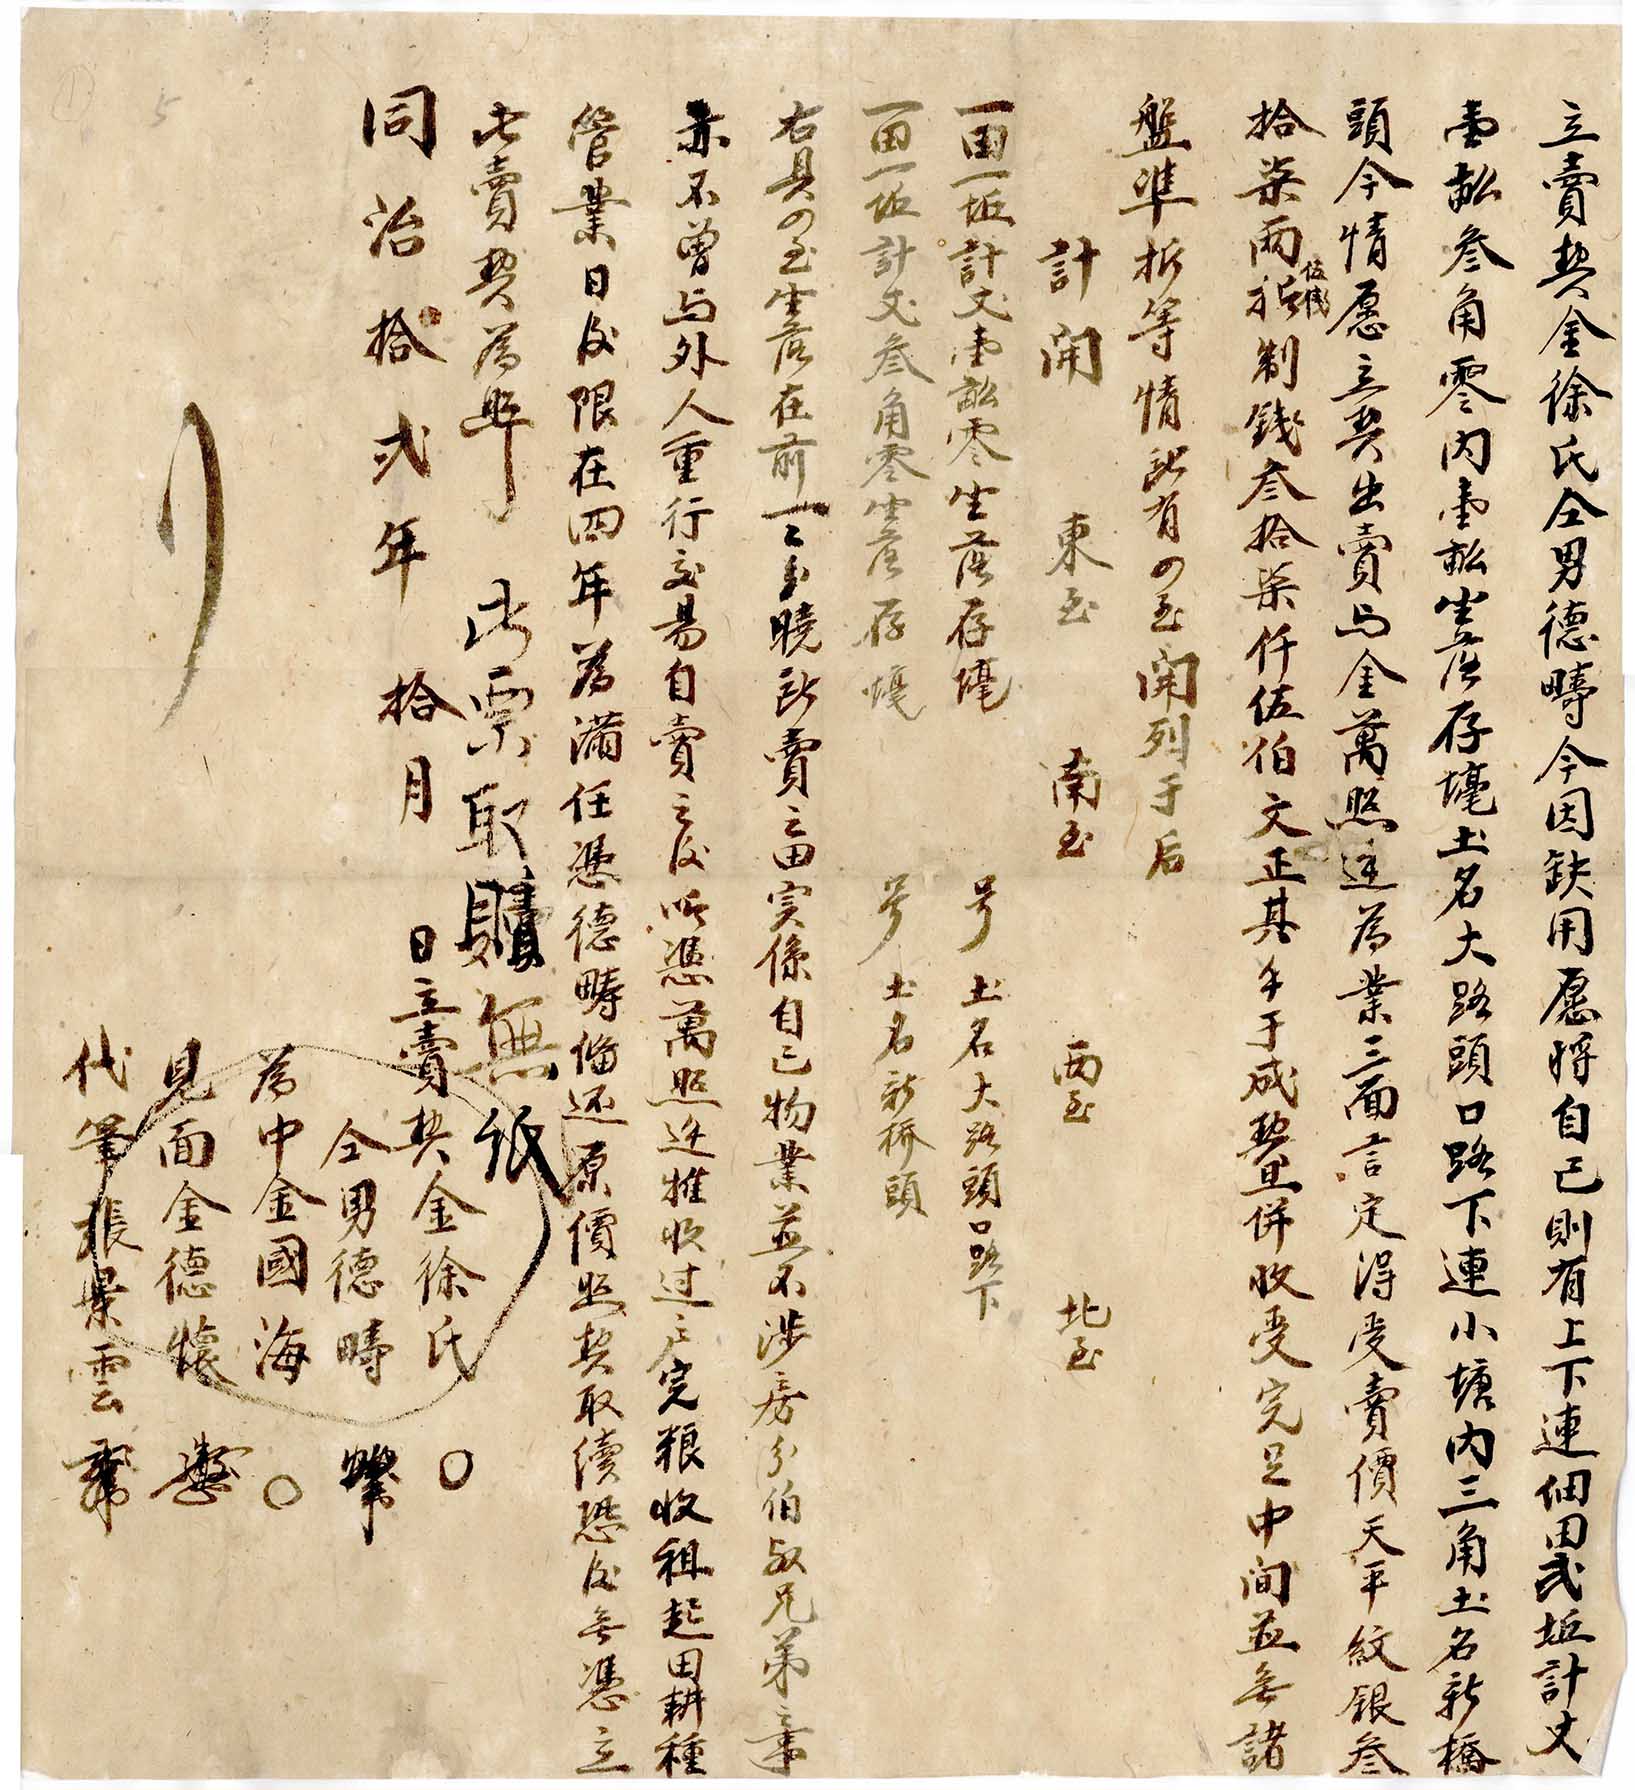 立賣契金徐氏仝男德疇今因缺用愿將自己則有上下連佃田弍坵計丈
壹畝叁角零内壹畝坐落存墘土名大路頭口路下連小塘内三角土名新橋
頭今情愿立契出賣与金萬照遠為業三面言定得受賣價天平紋銀叁
拾柒兩伍錢折制錢叁拾柒仟伍伯文正其銀当于成契旦併收受完足中间並無諸
盤準折等情所有四至開列于后
計開 東至 南至 西至 北至
一田一坵計丈壹畝零坐落存墘 号土名大路頭口路下
一田一坵計丈叁角零坐落存墘 号土名新橋頭
右具四至坐落在前一一分曉所賣之田实係自己物業並不涉房分伯叔兄弟之事
亦不曾与外人重行交易自賣之後听憑萬照遠推收过户完粮收租起田耕種
管業日後限在四年為滿任憑德疇俻还原價照契取續恐後無憑立
此賣契為照 此票取贖無紙
同治拾弍年拾月 日立賣契金徐氏 〇
仝男德疇
為中金國海 〇
見面金德懷
代筆張景雲
5
①